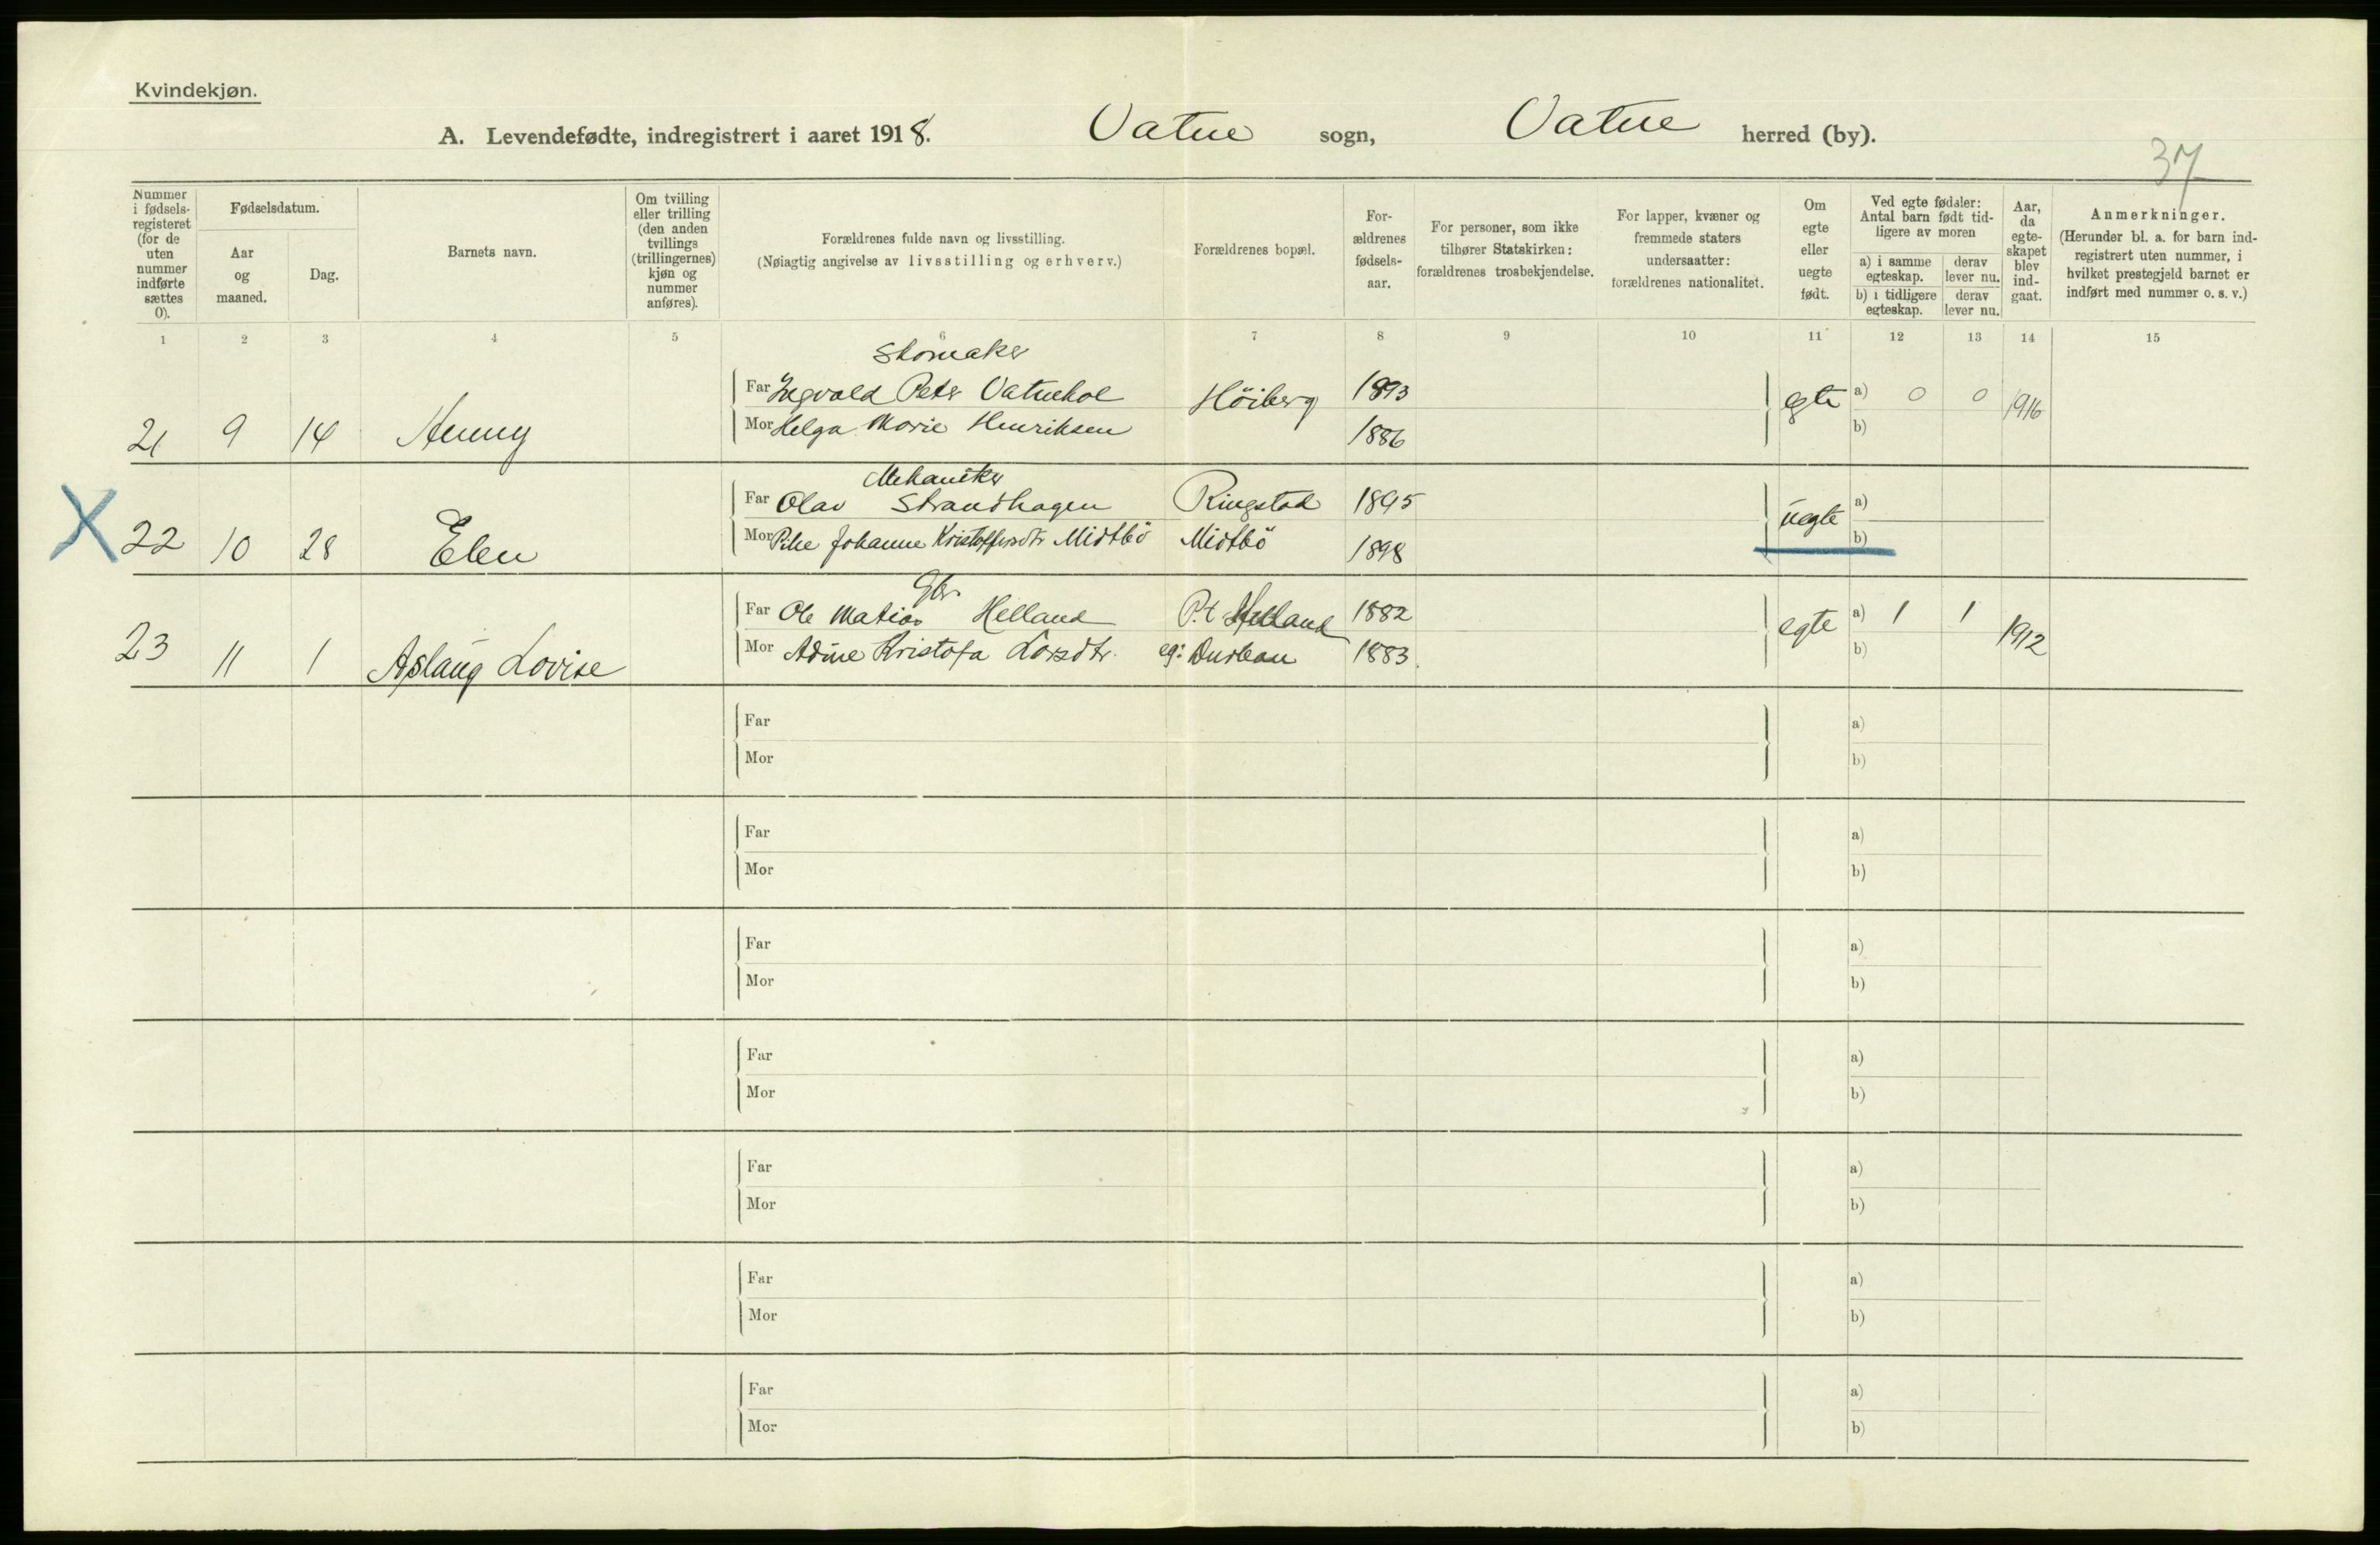 Kvindekjøn.
A. Levendefødte, indregistrert i aaret 1918. Vatne sogn, Vatne herred (by).
37
Nummer i fødselsregisteret (for de uten nummer indførte sættes 0).
Fødselsdatum.
Aar og maaned.
Dag.
Barnets navn.
Om tvilling eller trilling (den anden tvillings (trillingernes) kjøn og nummer anføres).
Forældrenes fulde navn og livsstilling.
(Nøiagtig angivelse av livsstilling og erhverv.)
Forældrenes bopæl.
Forældrenes fødselsaar.
For personer, som ikke tilhører Statskirken: forældrenes trosbekjendelse.
For lapper, kvæner og fremmede staters undersaatter: forældrenes nationalitet.
Om egte eller uegte født.
Ved egte fødsler: Antal barn født tidligere av moren
a) i samme egteskap.
derav lever nu.
b) i tidligere egteskap.
derav lever nu.
Aar, da egteskapet blev indgaat.
Anmerkninger.
(Herunder bl. a. for barn indregistrert uten nummer, i hvilket prestegjeld barnet er indført med nummer o. s. v.)
1 2 3 4 5 6 7 8 9 10 11 12 13 14 15
Skomaker
Far Ingvald Peter Vatnehol Höiberg 1893 egte a) 0 0 1916
21 9 14 Henny Mor Helga Marie Henriksen 1886 b)
Mekaniker
Far Olav Strandhagen Ringstad 1895 uegte a)
X 22 10 28 Elen Mor Pike Johanne Kristoffersdtr Midtbö Midtbö 1898 b)
Gbr.
Far Ole Matias Helland P.t. Helland 1882 egte a) 1 1 1912
23 11 1 Aslaug Lovise Mor Adine Kristofa Larsdtr. eg: 1883. b)
Far a)
Mor b)
Far a)
Mor b)
Far a)
Mor b)
Far a)
Mor b)
Far a)
Mor b)
Far a)
Mor b)
Far a)
Mor b)